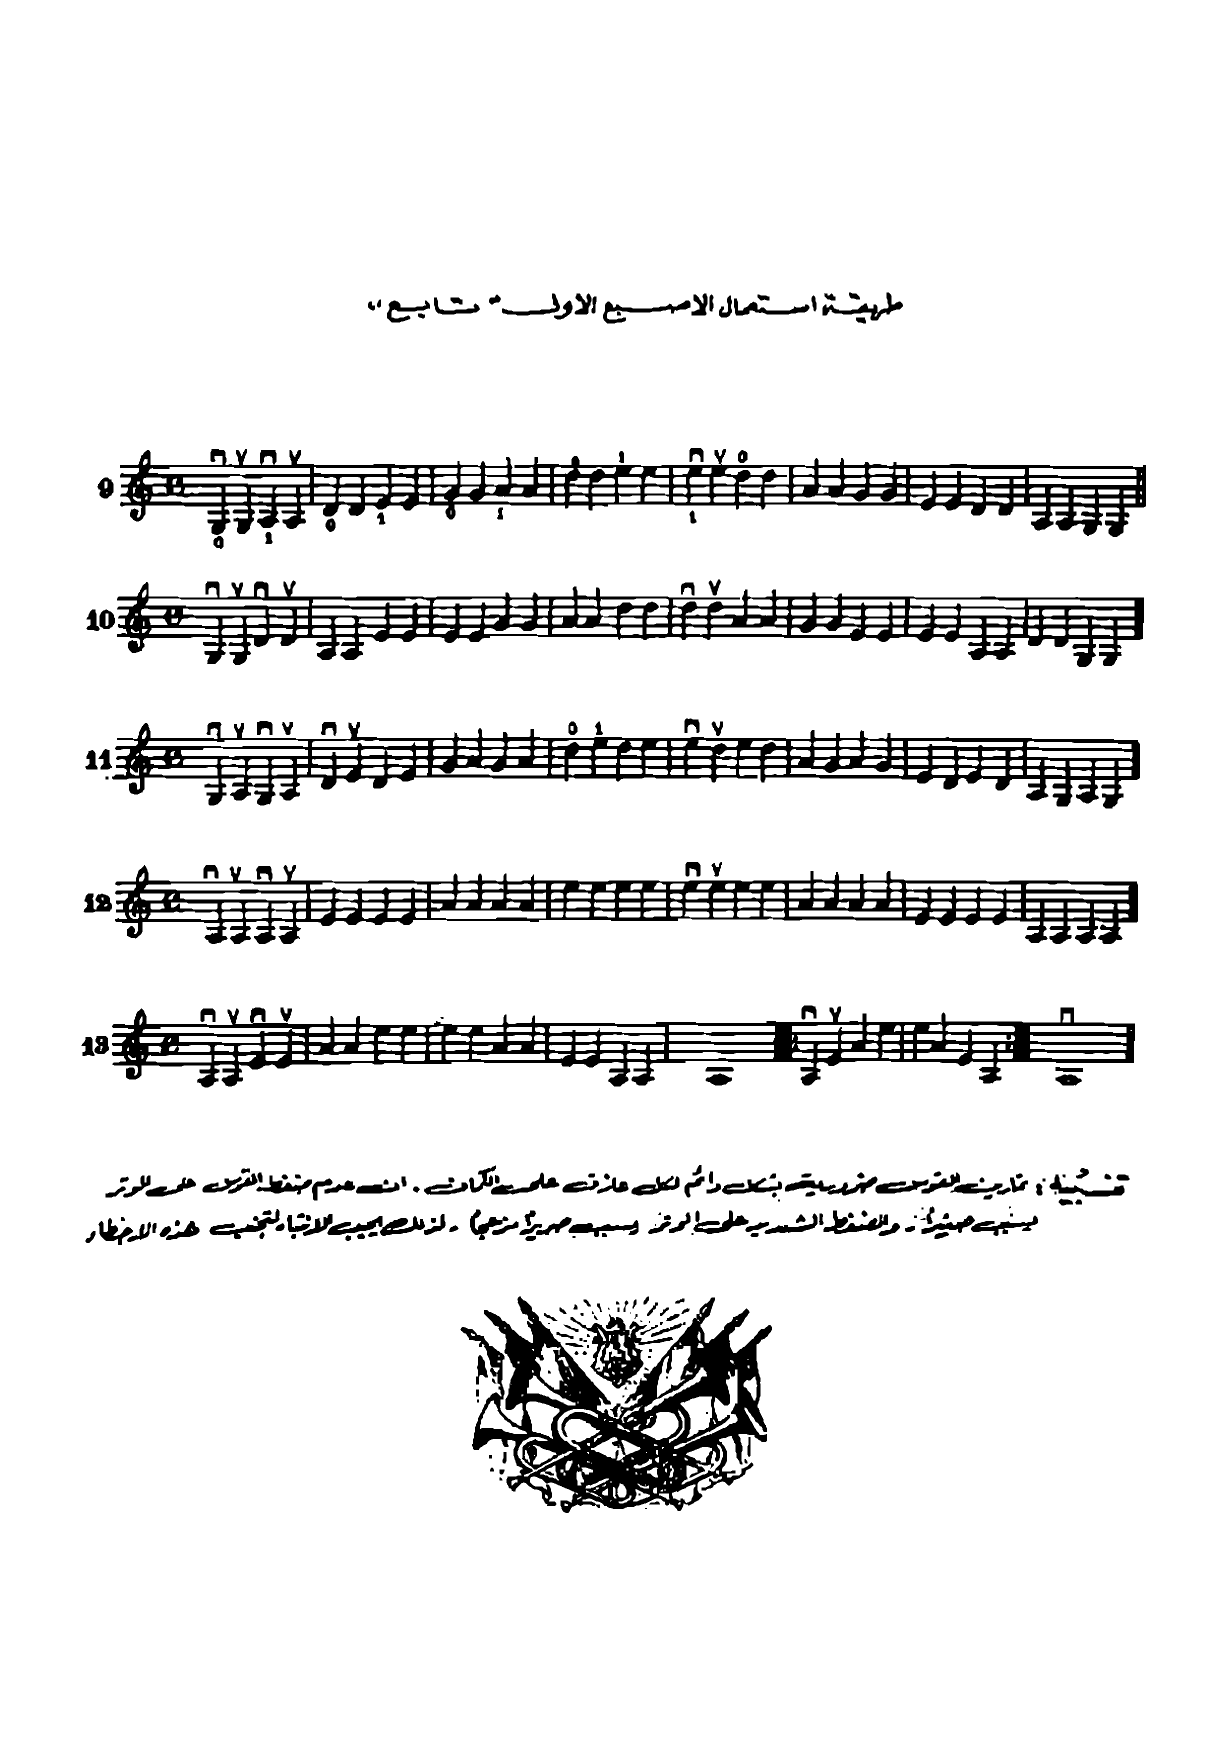 طريقة استعمال الاصبع الاول " تابع "
9
10
11
12
13
تنبيه : تمارين القوس ضرورية بشكل دائم لكل عازف على الكمان . ان عدم ضغط القوس على الوتر
يسبب صفيراً . والضغط الشديد على الوتر يسبب صريراً مزعجاً . لذلك يجب الانتباه لتجنب هذه الاخطار